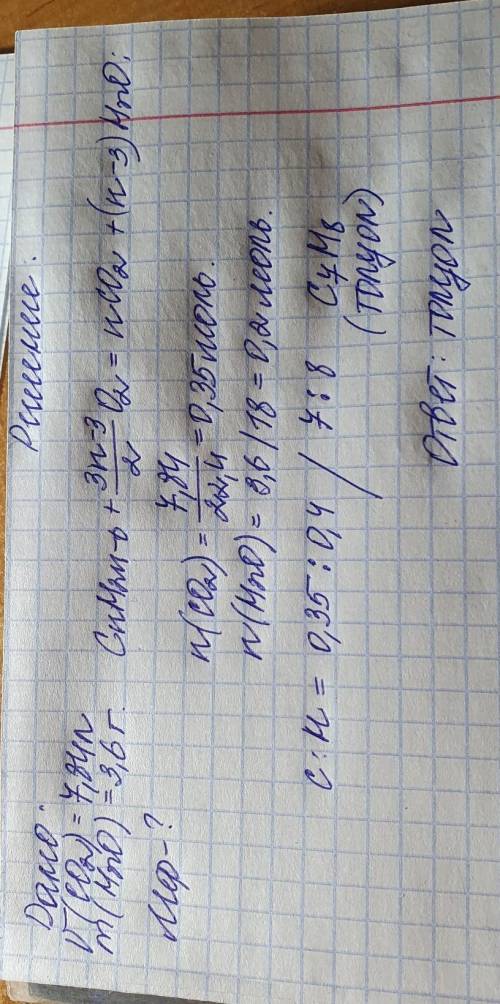 Дано:
V(CO₂) = 7,84л
m(H₂O) = 3,6 г.
Мф-?
Решение:
CnH2n-6 + 3n-3/2 O₂ = nCO₂ + (n-3) H₂O;
n(CO₂) = 7,84/22,4 = 0,35моль.
n(H₂O) = 3,6/18 = 0,2 моль.
C:H = 0,35:0,4 / 7:8 C₇H₈
(толуол)
Ответ: толуол